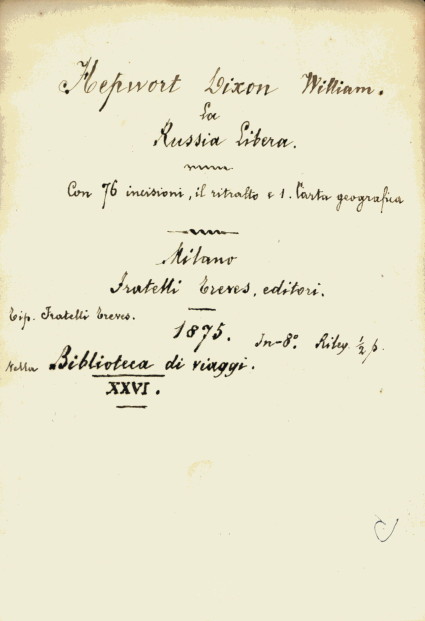 Hepwort Dixon William.
La
Russia Libera.
Con 76 incisioni, il ritratto e 1. Carta geografica
Milano
Fratelli Treves, editori.
Tip. Fratelli Treves.
1875. In-8º. Rileg. ½ p.
nella Biblioteca di viaggi.
XXVI.